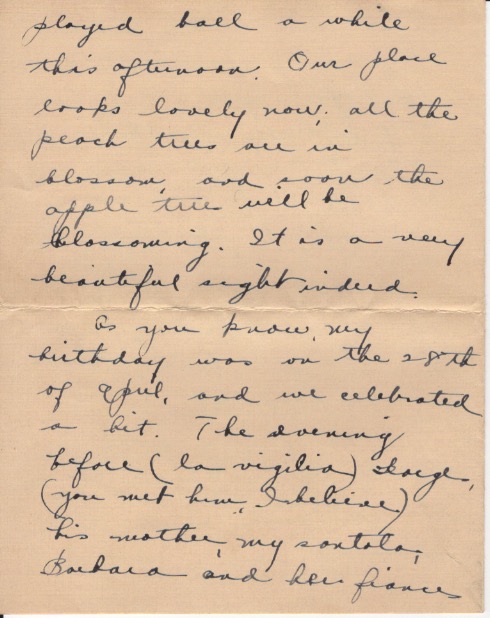 played ball a while
this afternoon. Our place
looks lovely now, all the
peach trees are in
blossom, and soon the
apple trees will be
blossoming. It is a very
beautiful sight indeed.
As you know, my
birthday was on the 28th
of April, and we celebrated
a bit. The evening
before (la vigilia) George,
(you met him, I believe)
his mother, my santola,
Barbara and her fiance